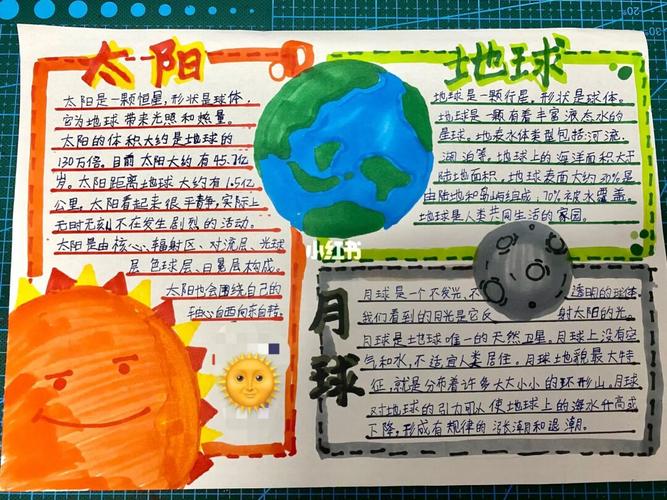 太阳
太阳是一颗恒星，形状是球体，
它为地球带来光照和热量。
太阳的体积大约是地球的
130万倍。目前太阳大约有45.7亿
岁。太阳距离地球大约有1.5亿
公里，太阳看起来很平静，实际上
无时无刻不在发生剧烈的活动。
太阳是由核心、辐射区、对流层、光球
层、色球层、日冕层构成。
太阳也会围绕自己的
轴心自西向东自转。
地球
地球是一颗行星，形状是球体。
地球是一颗有着丰富液态水的
星球。地表水体类型包括河流、
湖泊等。地球上的海洋面积大于
陆地面积，地球表面大约30%是
由陆地和岛屿组成，70%被水覆盖。
地球是人类共同生活的家园。
小红书
月球
月球是一个不发光、不透明的球体
我们看到的月光是它反射太阳的光。
月球是地球唯一的天然卫星。月球上没有空
气和水，不适宜人类居住。月球地貌最大特
征，就是分布着许多大大小小的环形山。月球
对地球的引力可以使地球上的海水升高或
下降，形成有规律的涨潮和退潮。